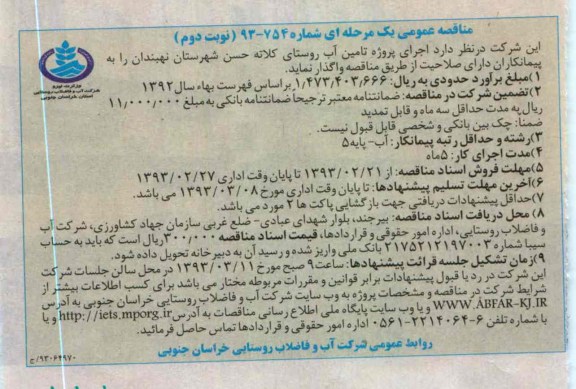 مناقصه عمومی یک مرحله ای شماره ۷۵۴-۹۳ (نوبت دوم)
این شرکت درنظر دارد اجرای پروژه تامین آب روستای کلاته حسن شهرستان نهبندان را به
پیمانکاران دارای صلاحیت از طریق مناقصه واگذار نماید.
۱)مبلغ برآورد حدودی به ریال: ۱,۴۷۳,۴۰۳,۶۶۶ براساس فهرست بهاء سال ۱۳۹۲
۲)تضمین شرکت در مناقصه: ضمانتنامه معتبر ترجیحاً ضمانتنامه بانکی به مبلغ ۱۱,۰۰۰,۰۰۰
ریال به مدت حداقل سه ماه و قابل تمدید
ضمنا: چک بین بانکی و شخصی قابل قبول نیست.
۳)رشته و حداقل رتبه پیمانکار: آب- پایه۵
۴)مدت اجرای کار: ۵ماه
۵)مهلت فروش اسناد مناقصه: از ۱۳۹۳/۰۲/۲۱ تا پایان وقت اداری ۱۳۹۳/۰۲/۲۷
۶)آخرین مهلت تسلیم پیشنهادها: تا پایان وقت اداری مورخ ۱۳۹۳/۰۳/۰۸ می باشد.
۷)حداقل پیشنهادات دریافتی جهت بازگشایی پاکت ها ۲ مورد می باشد.
۸) محل دریافت اسناد مناقصه: بیرجند، بلوار شهدای عبادی- ضلع غربی سازمان جهاد کشاورزی، شرکت آب
و فاضلاب روستایی، اداره امور حقوقی و قراردادها، قیمت اسناد مناقصه ۳۰۰,۰۰۰ریال است که باید به حساب
سیبا شماره ۲۱۷۵۲۱۲۱۹۷۰۰۳ بانک ملی واریز شده و رسید آن به دبیرخانه تحویل داده شود.
۹)زمان تشکیل جلسه قرائت پیشنهادها: ساعت ۹ صبح مورخ ۱۳۹۳/۰۳/۱۱ در محل سالن جلسات شرکت
این شرکت در رد یا قبول پیشنهادات برابر قوانین و مقررات مربوطه مختار می باشد برای کسب اطلاعات بیشتر از
شرایط شرکت در مناقصه و مشخصات پروژه به وب سایت شرکت آب و فاضلاب روستایی خراسان جنوبی به آدرس
WWW.ABFAR-KJ.IR و یا وب سایت پایگاه ملی اطلاع رسانی مناقصات به آدرس http://iets.mporg.ir و یا
با شماره تلفن ۶-۲۲۱۴۰۶۴-۰۵۶۱ اداره امور حقوقی و قراردادها تماس حاصل فرمائید.
روابط عمومی شرکت آب و فاضلاب روستایی خراسان جنوبی
۹۳۰۶۴۹۷۰/ج
وزارت نیرو
شرکت آب و فاضلاب روستایی
استان خراسان جنوبی